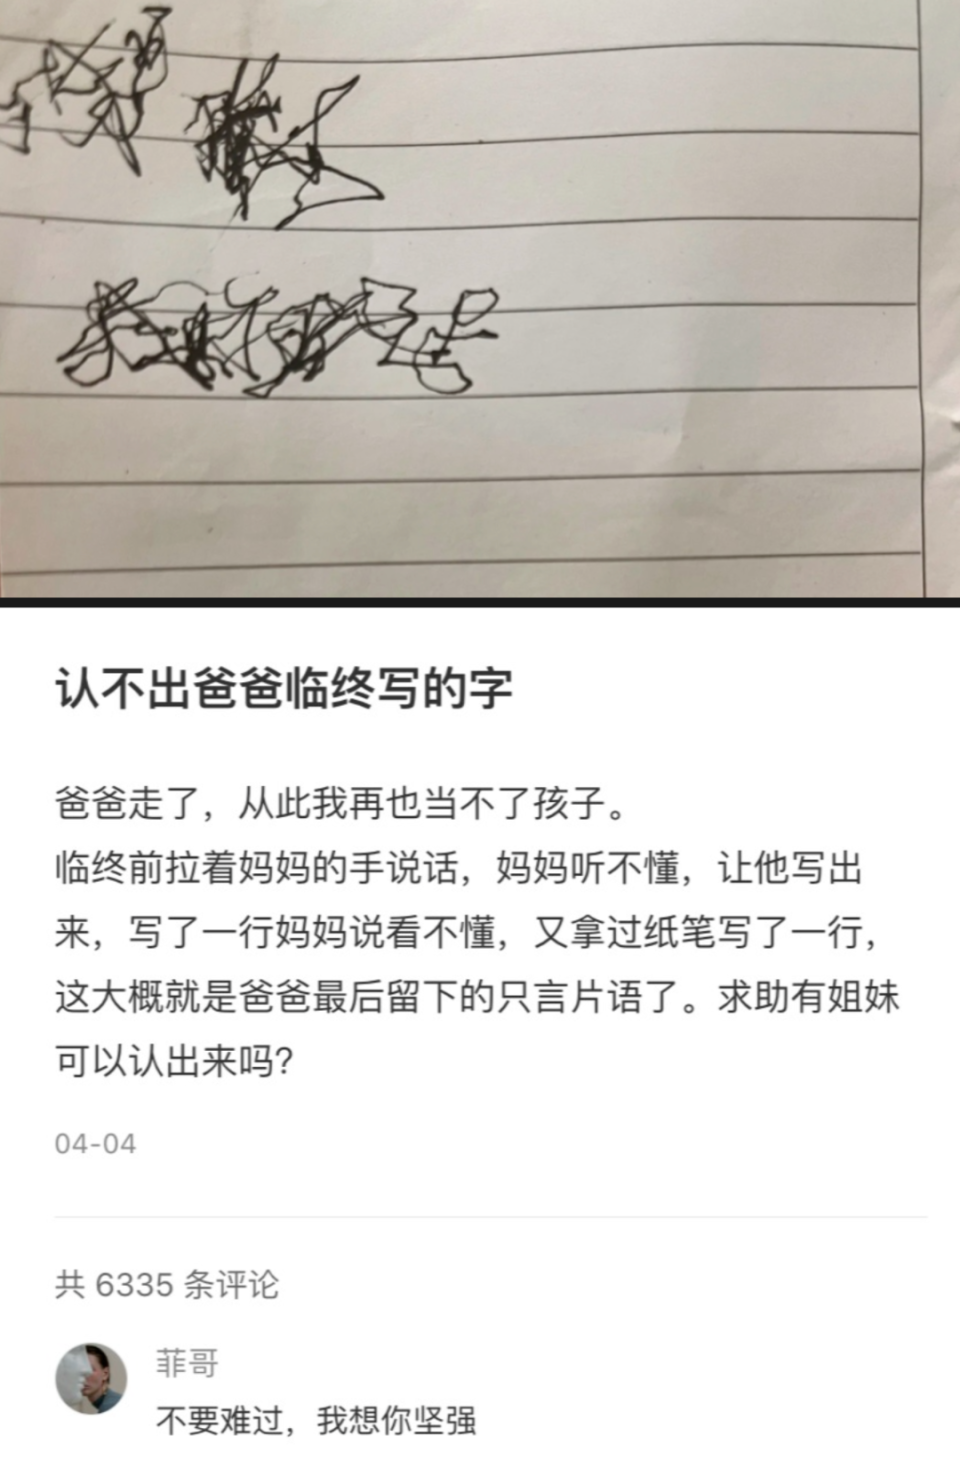 认不出爸爸临终写的字
爸爸走了，从此我再也当不了孩子。
临终前拉着妈妈的手说话，妈妈听不懂，让他写出
来，写了一行妈妈说看不懂，又拿过纸笔写了一行，
这大概就是爸爸最后留下的只言片语了。求助有姐妹
可以认出来吗？
04-04
共 6335 条评论
菲哥
不要难过，我想你坚强